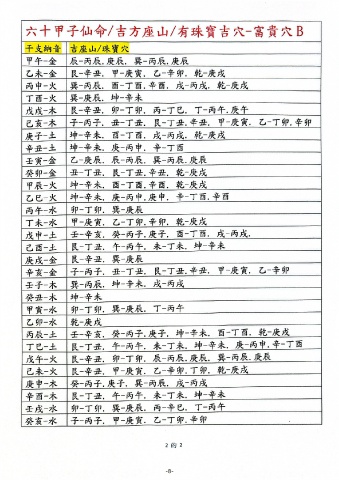 六十甲子仙命/吉方座山/有珠寶吉穴-富貴穴B
干支納音 吉座山/珠寶穴
甲午-金 辰-丙辰,庚辰, 巽-丙辰,庚辰
乙未-金 艮-辛丑, 甲-庚寅, 乙-辛卯, 乾-庚戌
丙申-火 巽-丙辰, 酉-丁酉,辛酉, 戌-丙戌, 乾-庚戌
丁酉-火 巽-庚辰, 坤-辛未
戊戌-木 艮-辛丑, 卯-丁卯, 丙-丁巳, 丁-丙午,庚午
己亥-木 子-丙子,庚子, 丑-丁丑, 艮-丁丑,辛丑, 甲-庚寅, 乙-丁卯,辛卯
庚子-土 坤-辛未, 酉-丁酉, 戌-丙戌, 乾-庚戌
辛丑-土 坤-辛未, 庚-丙申, 辛-丁酉
壬寅-金 乙-庚辰, 辰-丙辰, 巽-丙辰,庚辰
癸卯-金 丑-丁丑, 艮-丁丑,辛丑, 乾-庚戌
甲辰-火 坤-辛未, 酉-丁酉,辛酉, 乾-庚戌
乙巳-火 坤-辛未, 庚-丙申,庚申, 辛-丁酉,辛酉
丙午-水 卯-丁卯, 巽-庚辰
丁未-水 甲-庚寅, 卯-丁卯,辛卯, 乾-庚戌
戊申-土 壬-辛亥, 癸-丙子,庚子, 酉-丁酉, 戌-丙戌,
己酉-土 艮-丁丑, 午-丙午, 未-丁未, 坤-辛未
庚戌-金 艮-辛丑, 巽-庚辰
辛亥-金 子-丙子, 丑-丁丑, 艮-丁丑,辛丑, 甲-庚寅, 乙-辛卯
壬子-木 巽-丙辰, 坤-辛未, 戌-丙戌
癸丑-木 坤-辛未
甲寅-水 卯-丁卯, 巽-庚辰, 丁-丙午
乙卯-水 乾-庚戌
丙辰-土 壬-辛亥, 癸-丙子,庚子, 坤-辛未, 酉-丁酉, 乾-庚戌
丁巳-土 艮-丁丑, 午-丙午, 未-丁未, 坤-辛未, 庚-丙申,辛-丁酉
戊午-火 艮-辛丑, 卯-丁卯, 辰-丙辰,庚辰, 巽-丙辰,庚辰
己未-火 艮-辛丑, 甲-庚寅, 乙-辛卯,丁卯, 乾-庚戌
庚申-木 癸-丙子,庚子, 巽-丙辰, 戌-丙戌
辛酉-木 艮-丁丑, 午-丙午, 未-丁未, 坤-辛未
壬戌-水 卯-丁卯, 巽-庚辰, 丙-辛巳, 丁-丙午
癸亥-水 子-丙子, 甲-庚寅, 乙-丁卯,辛卯
2 的 2
-8-